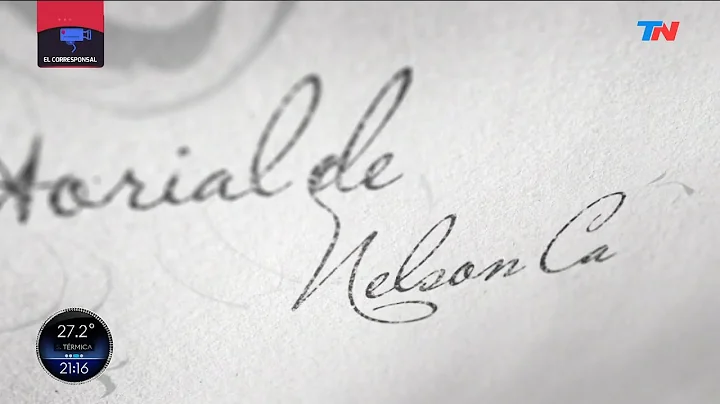 EL CORRESPONSAL
TN
torial de
Nelson Ca
27.2°
TÉRMICA
21:16